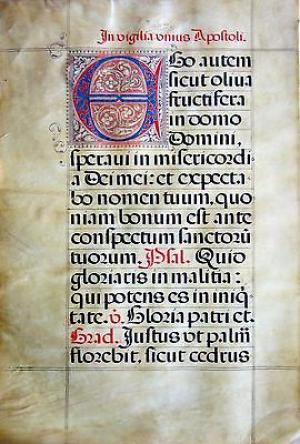 In vigilia unius Apostoli.
Ego autem
sicut oliua
fructifera
in domo
Domini,
speraui in misericordi
a Dei mei: et expecta
bo nomen tuum, quo
niam bonum est ante
conspectum sanctorū
tuorum. Psal. Quid
gloriaris in malitia:
qui potens es in iniq̄
tate. ℣. Gloria patri et.
Grad. Justus vt palm̄
florebit, sicut cedrus